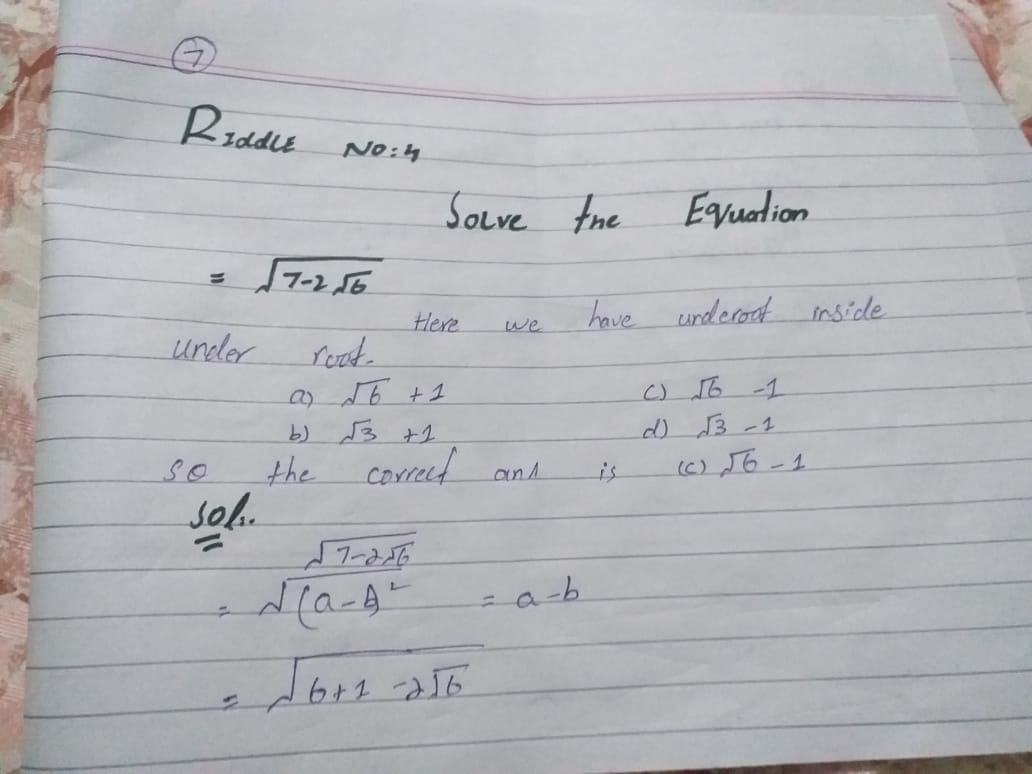 7
RIddLE NO:4
Solve the Equation
= √7-2√6
Here we have underoot inside
under root.
a) √6 +1 c) √6 -1
b) √3 +1 d) √3 -1
so the correct ans is (c) √6 -1
Sol:.
√7-2√6
= √(a-b)² = a-b
= √6+1 -2√6